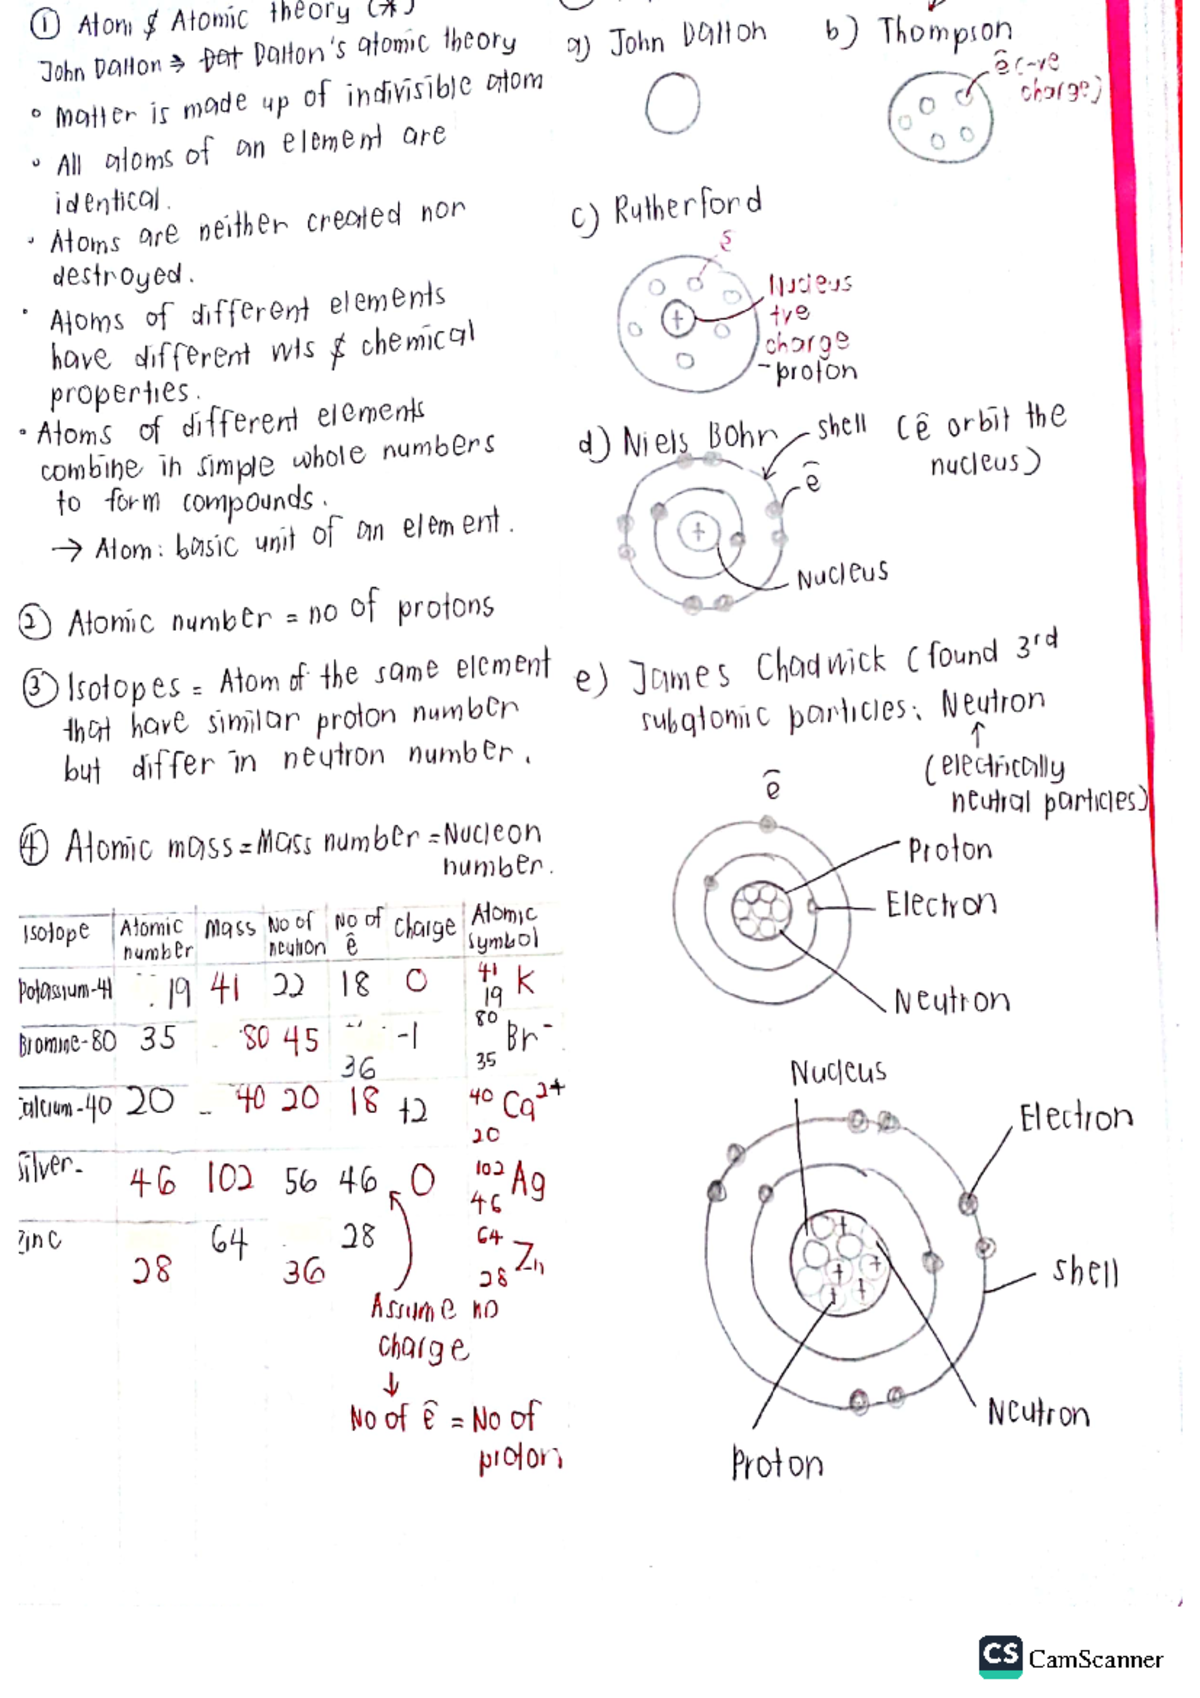 ① Atom & Atomic theory (*)
John Dalton → Dat Dalton's atomic theory
• Matter is made up of indivisible atom
• All atoms of an element are
identical.
• Atoms are neither created nor
destroyed.
• Atoms of different elements
have different wts & chemical
properties.
• Atoms of different elements
combine in simple whole numbers
to form compounds.
→ Atom: basic unit of an element.
② Atomic number = no of protons
③ Isotopes = Atom of the same element
that have similar proton number
but differ in neutron number.
④ Atomic mass = Mass number = Nucleon
number.
Isotope | Atomic number | Mass | No of neutron | No of ē | Charge | Atomic symbol
Potassium-41 | 19 | 41 | 22 | 18 | 0 | 41 19 K
Bromine-80 | 35 | 80 | 45 | 36 | -1 | 80 35 Br⁻
Calcium-40 | 20 | 40 | 20 | 18 | +2 | 40 20 Ca²⁺
Silver- | 46 | 102 | 56 | 46 | 0 | 102 46 Ag
Zinc | 28 | 64 | 36 | 28 | 64 28 Zn
Assume no
charge
↓
No of ē = No of
proton
a) John Dalton
b) Thompson
ē (-ve
charge)
c) Rutherford
ē
+
Nucleus
+ve
charge
- proton
d) Niels Bohr
shell (ē orbit the
nucleus)
ē
+
Nucleus
e) James Chadwick (found 3rd
subatomic particles: Neutron
↑
(electrically
neutral particles)
ē
Proton
Electron
Neutron
Nucleus
Electron
Shell
Neutron
Proton
CS CamScanner